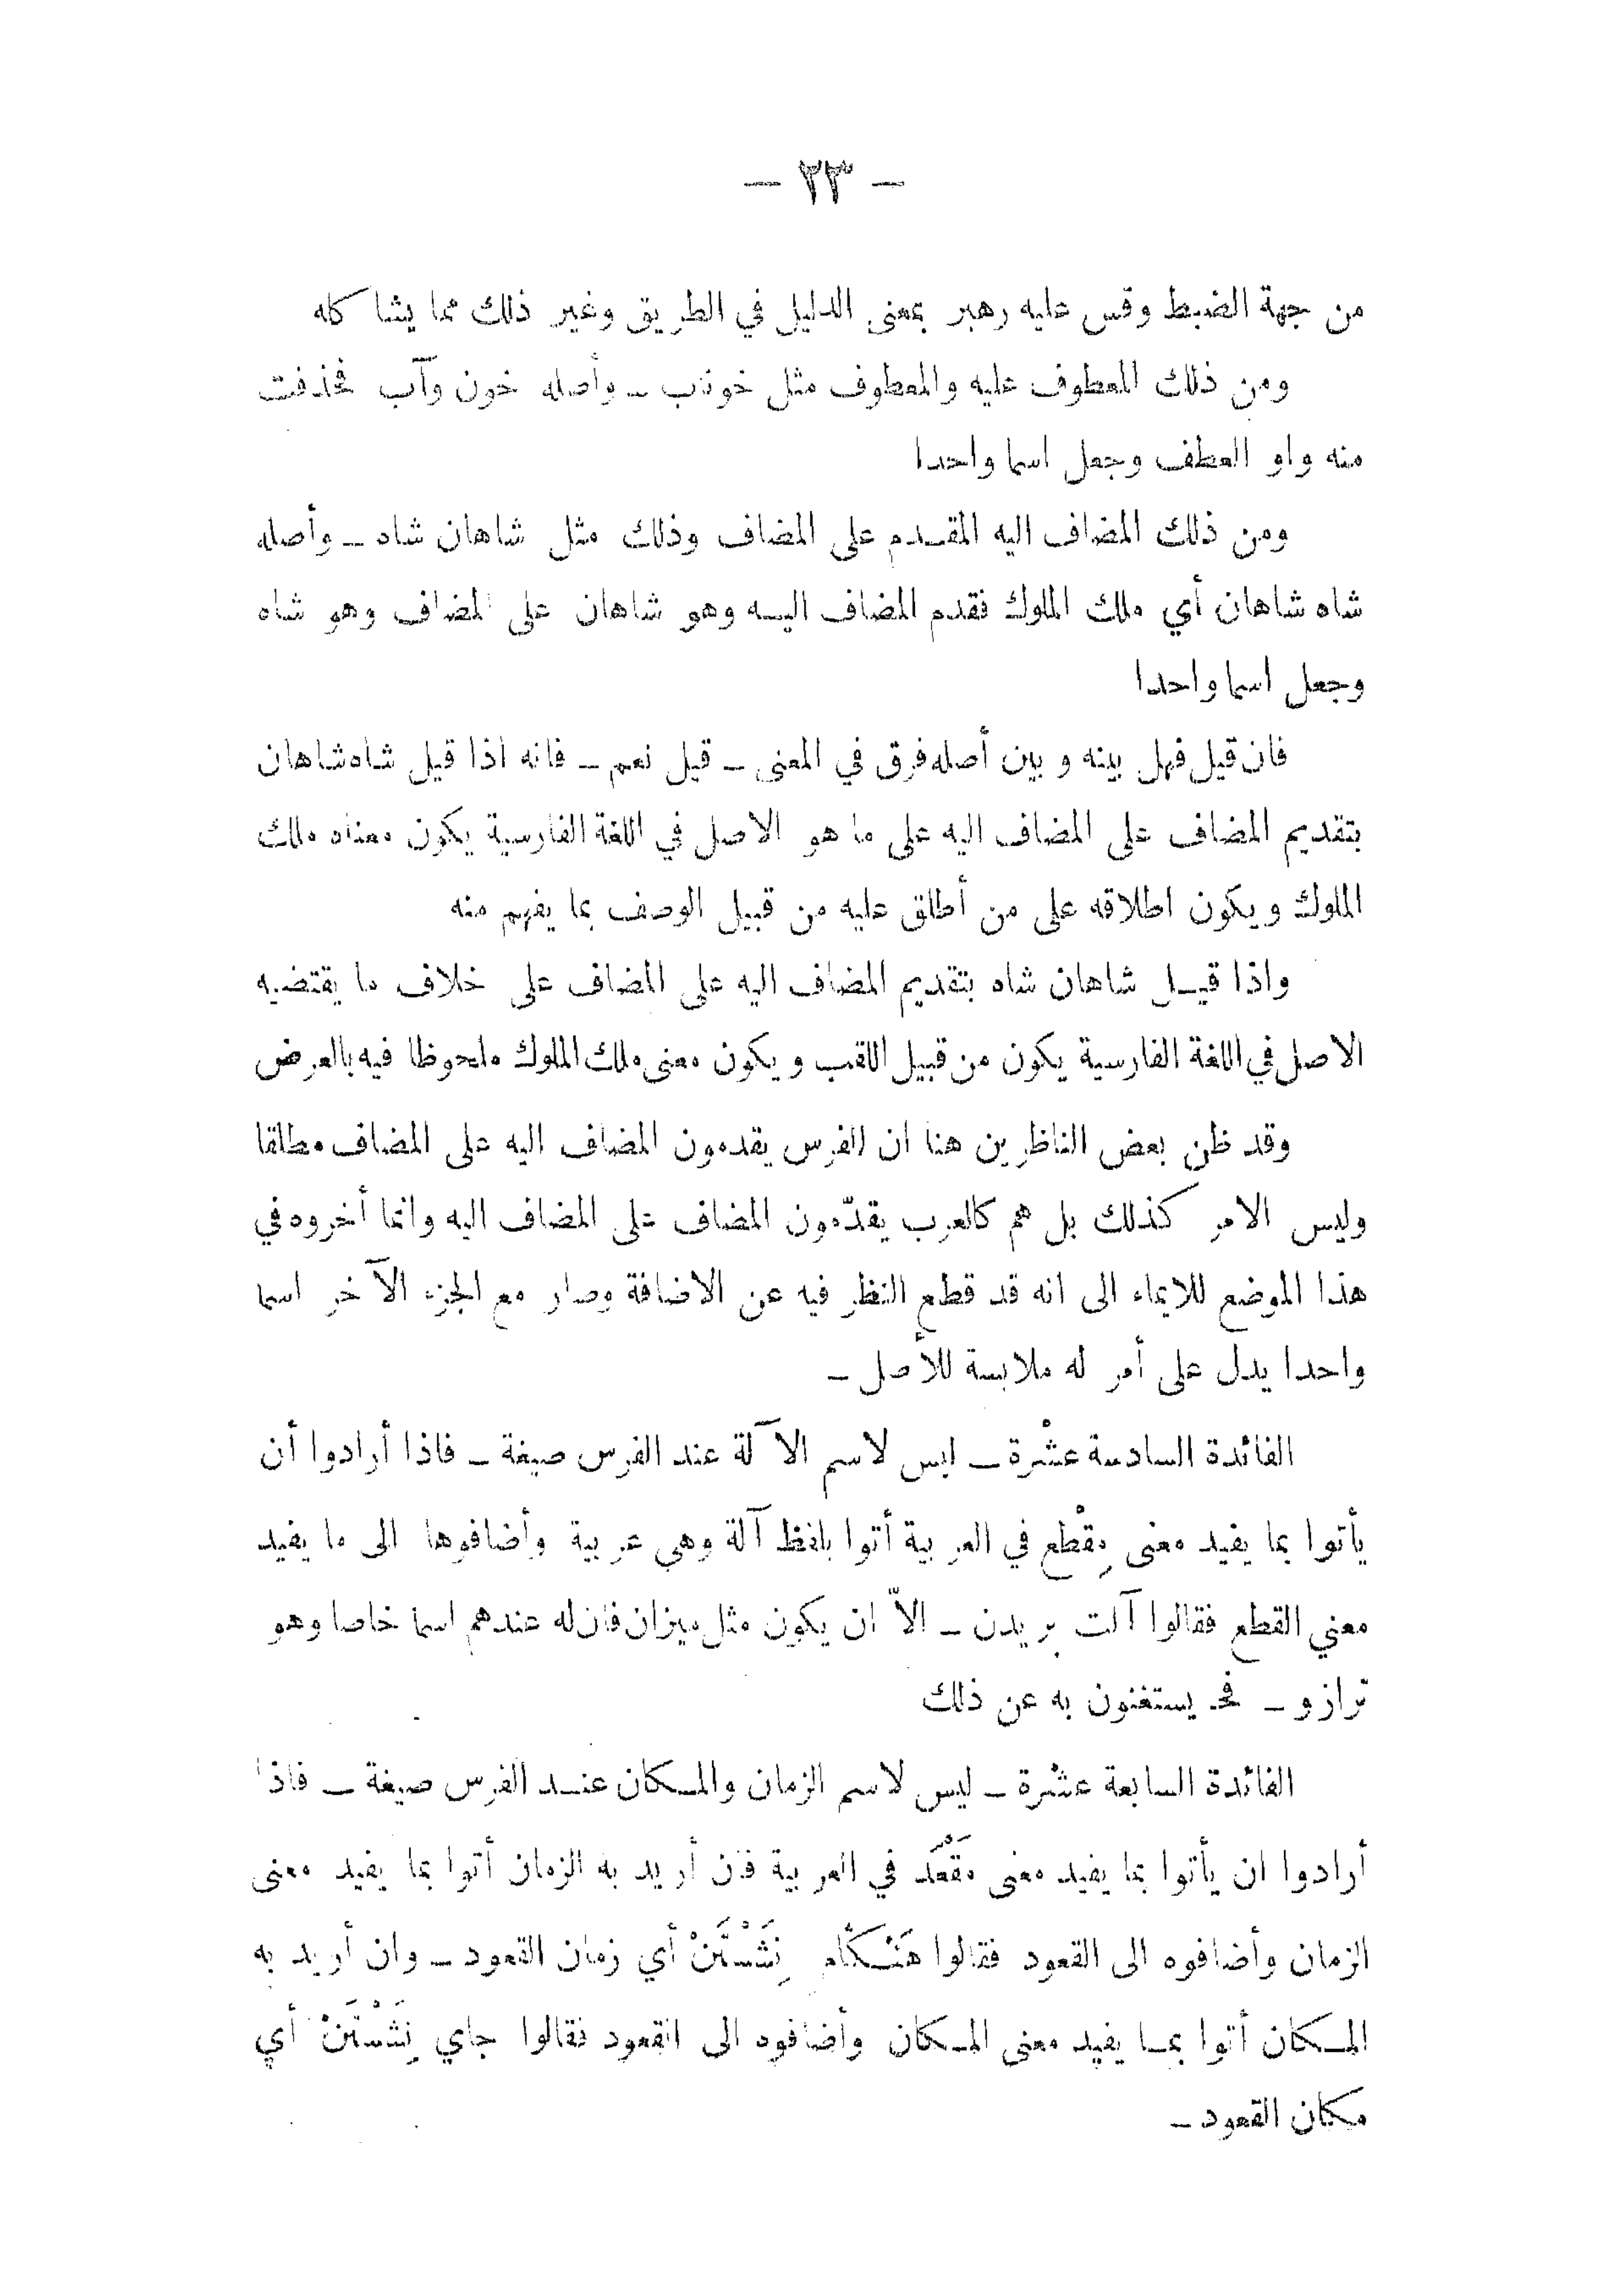 — ٢٣ —
من جهة الضبط وقس عليه رهبر بمعنى الدليل في الطريق وغير ذلك مما يشاكله
ومن ذلك المعطوف عليه والمعطوف مثل خوناب ـ وأصله خون وآب فحذفت
منه واو العطف وجعل اسما واحدا
ومن ذلك المضاف اليه المقدم على المضاف وذلك مثل شاهان شاه ـ وأصله
شاه شاهان أي ملك الملوك فقدم المضاف اليه وهو شاهان على المضاف وهو شاه
وجعل اسما واحدا
فان قيل فهل بينه وبين أصله فرق في المعنى ـ قيل نعم ـ فانه اذا قيل شاه شاهان
بتقديم المضاف على المضاف اليه على ما هو الاصل في اللغة الفارسية يكون معناه ملك
الملوك ويكون اطلاقه على من أطلق عليه من قبيل الوصف بما يفهم منه
واذا قيل شاهان شاه بتقديم المضاف اليه على المضاف على خلاف ما يقتضيه
الاصل في اللغة الفارسية يكون من قبيل اللقب ويكون معنى ملك الملوك ملحوظا فيه بالعرض
وقد ظن بعض الناظرين هنا ان الفرس يقدمون المضاف اليه على المضاف مطلقا
وليس الامر كذلك بل هم كالعرب يقدّمون المضاف على المضاف اليه وانما أخروه في
هذا الموضع للايماء الى انه قد قطع النظر فيه عن الاضافة وصار مع الجزء الآخر اسما
واحدا يدل على أمر له ملابسة للأصل ـ
الفائدة السادسة عشْرة ـ ليس لاسم الآلة عند الفرس صيغة ـ فاذا أرادوا أن
يأتوا بما يفيد معنى مِقْطع في العربية أتوا بلفظ آلة وهي عربية وأضافوها الى ما يفيد
معني القطع فقالوا آلت بريدن ـ الاّ ان يكون مثل ميزان فان له عندهم اسما خاصا وهو
ترازو ـ فحـ يستغنون به عن ذلك
الفائدة السابعة عشْرة ـ ليس لاسم الزمان والمكان عند الفرس صيغة ـ فاذا
أرادوا ان يأتوا بما يفيد معنى مَقْعَد في العربية فان أريد به الزمان أتوا بما يفيد معنى
الزمان وأضافوه الى القعود فقالوا هَنْكَام نِشَسْتَنْ أي زمان القعود ـ وان أريد به
المكان أتوا بما يفيد معنى المكان وأضافوه الى القعود فقالوا جاي نِشَسْتَنْ أي
مكان القعود ـ